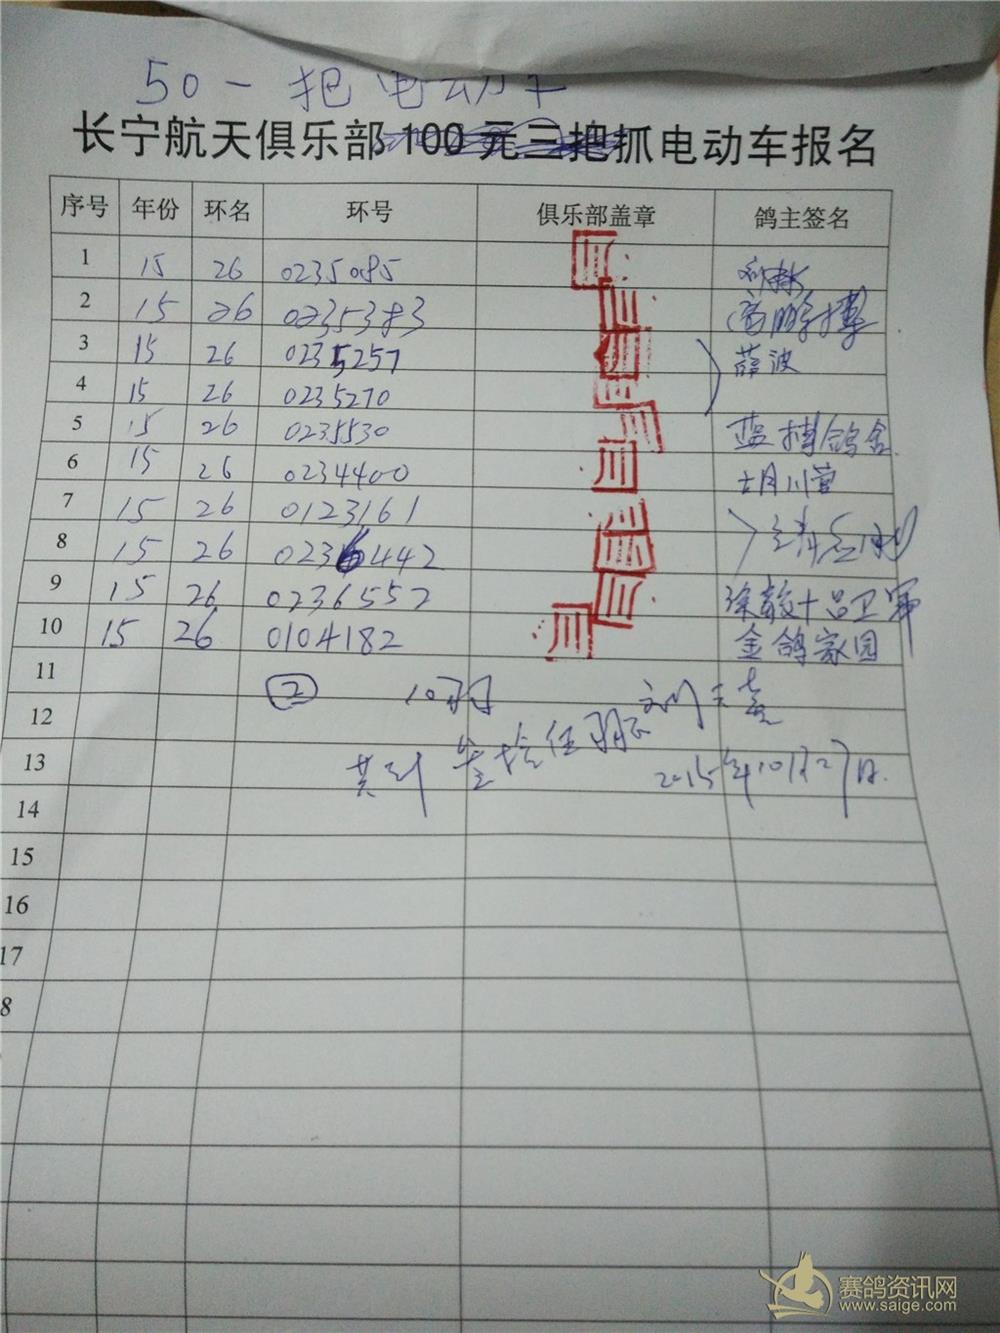 50一把电动车
长宁航天俱乐部100元三把抓电动车报名
序号 年份 环名 环号 俱乐部盖章 鸽主签名
1 15 26 0235085
2 15 26 0235383
3 15 26 0235257 薛波
4 15 26 0235270
5 15 26 0235530 蓝博鸽舍
6 15 26 0234400 七月川营
7 15 26 0123161
8 15 26 0236442
9 15 26 0236552 涂敏十吕卫军
10 15 26 0104182 金鸽家园
11
② 10羽
12
共计 壹拾 羽
13 2015年10月27日
14
15
16
17
8
赛鸽资讯网
www.saige.com